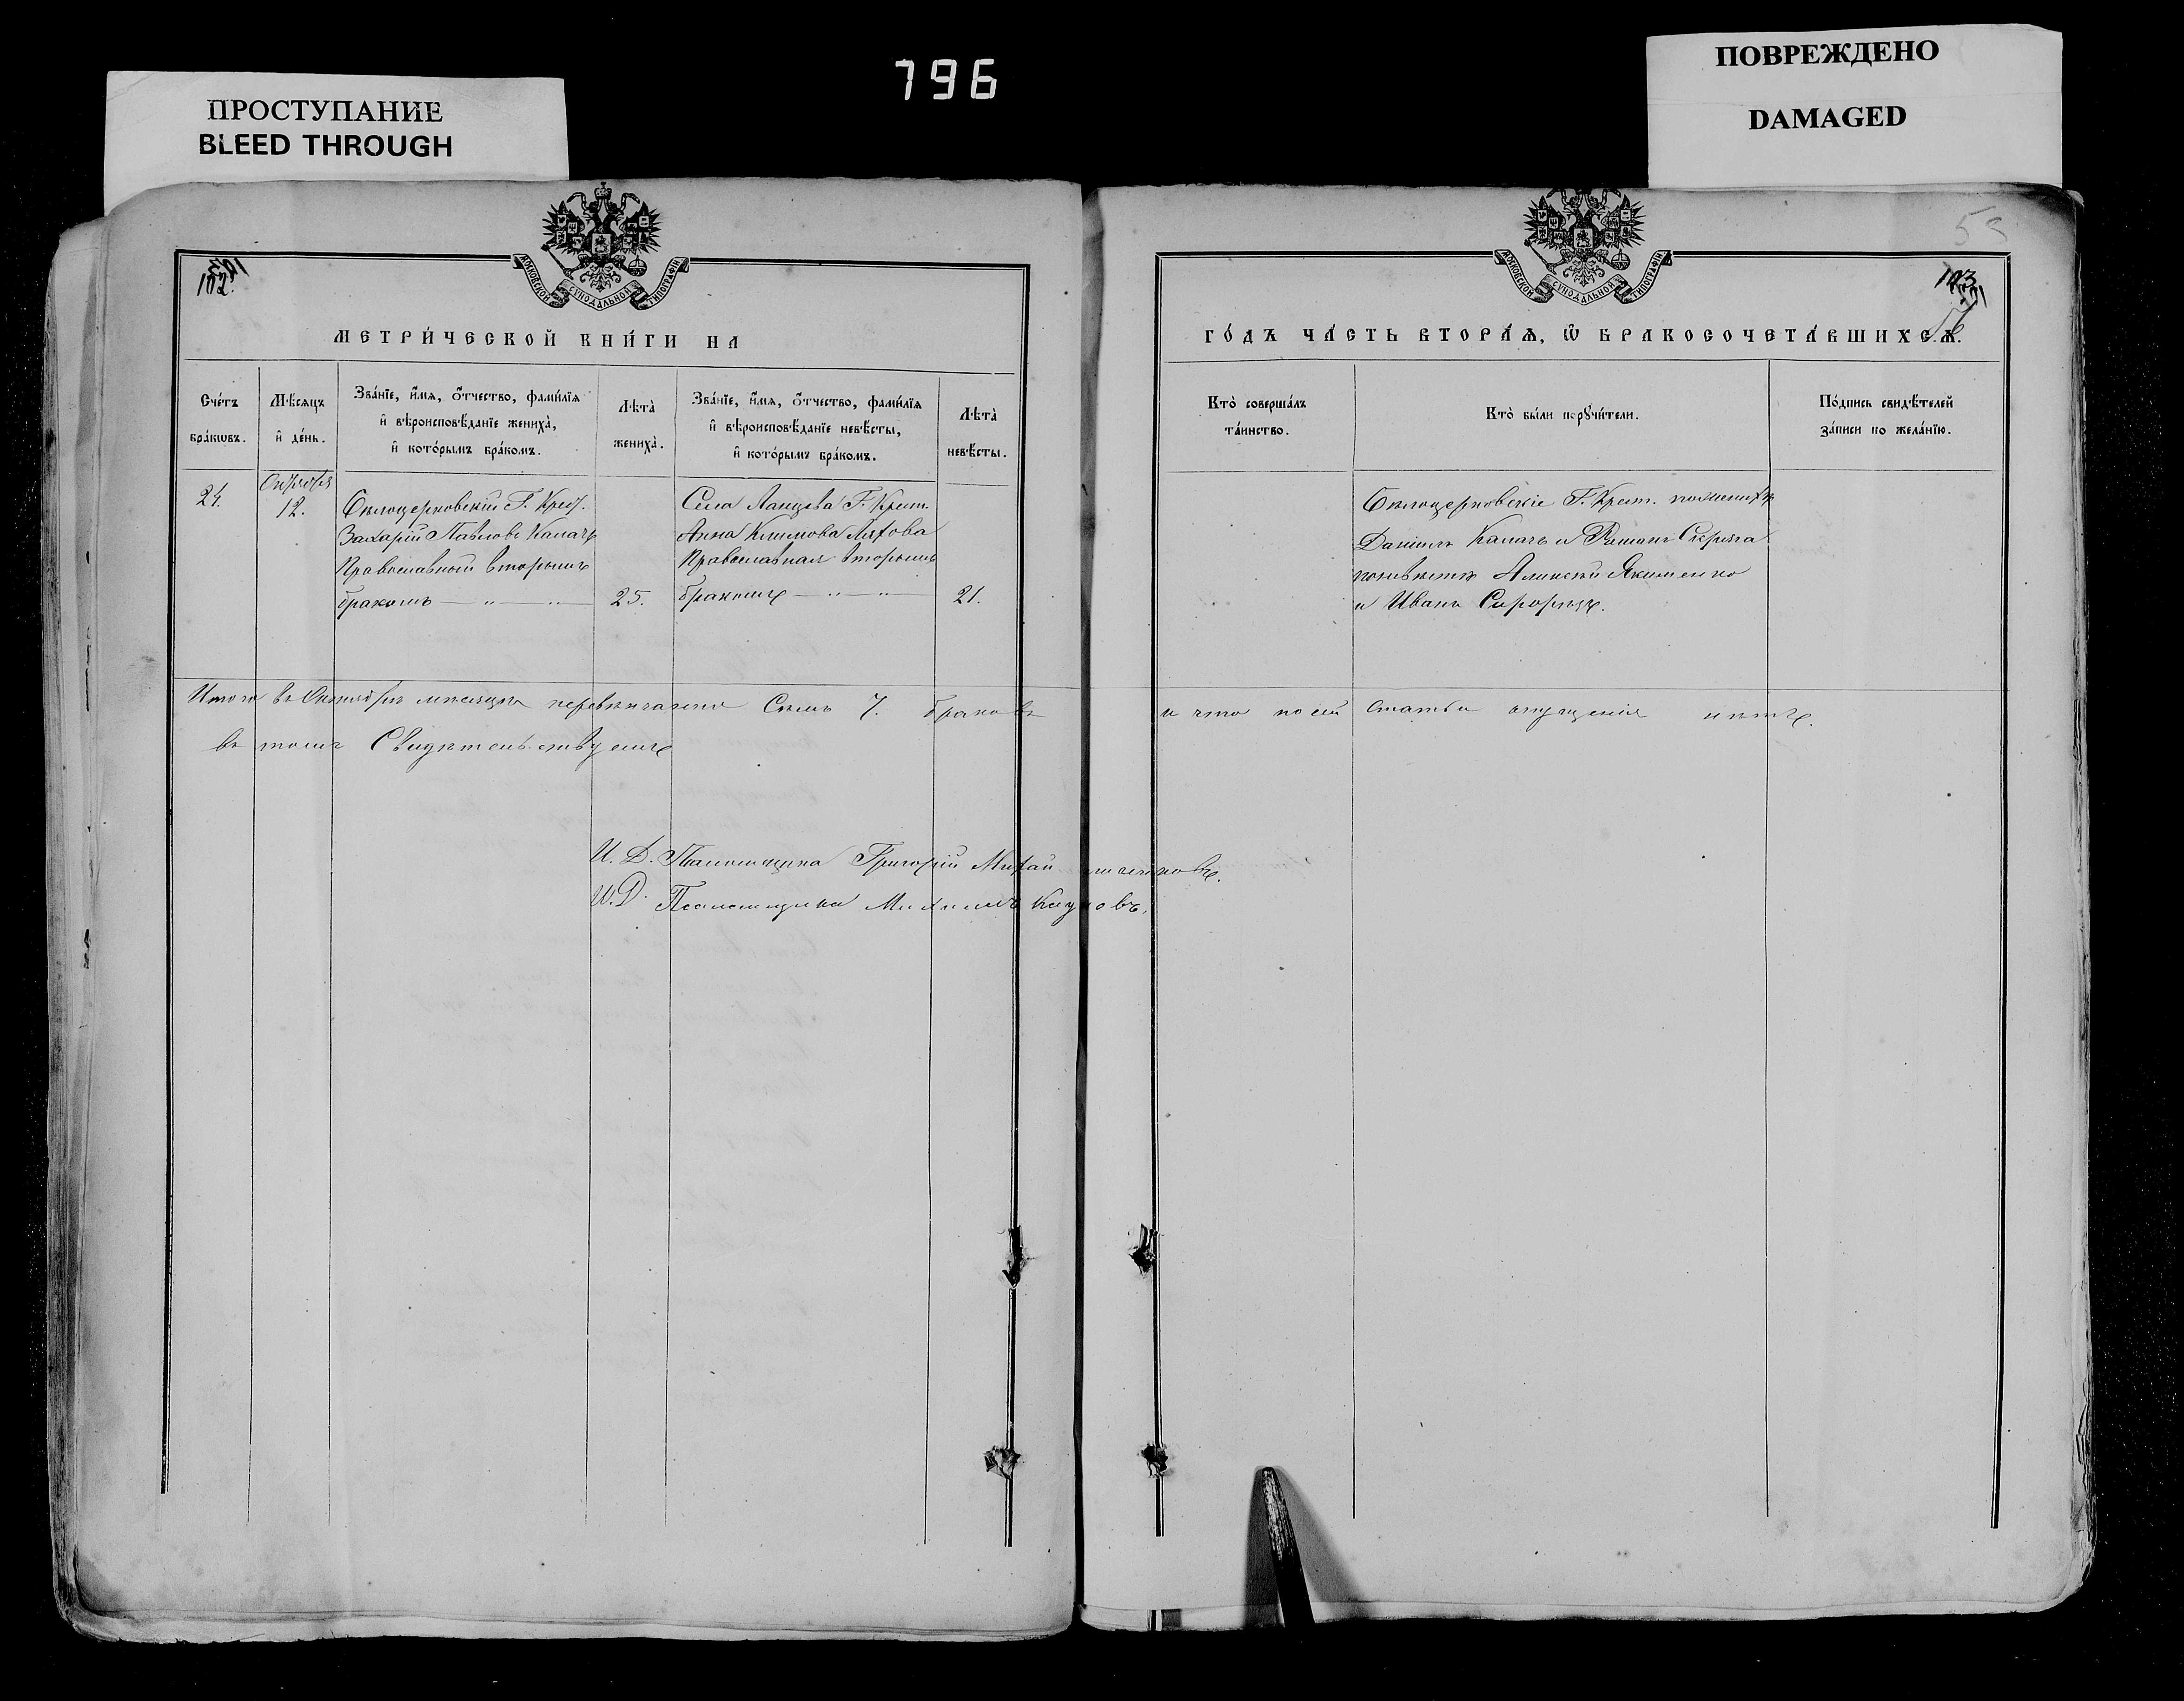 796
ПРОСТУПАНИЕ
BLEED THROUGH
ПОВРЕЖДЕНО
DAMAGED
МОСКОВСКОЙ СѴНОДАЛЬНОЙ ТИПОГРАФІИ
102.
МЕТРИ́ЧЕСКОЙ КНИ́ГИ НА
Сче́тъ бра́кѡвъ.
Мѣ́сяцъ и҆ де́нь.
Зва́нїе, и҆́мѧ, ѻ҆́тчество, фами́лїѧ
и҆ вѣроисповѣ́данїе жениха̀,
и҆ кото́рымъ бра́комъ.
Лѣта̀ жениха̀.
Зва́нїе, и҆́мѧ, ѻ҆́тчество, фами́лїѧ
и҆ вѣроисповѣ́данїе невѣ́сты,
и҆ кото́рымъ бра́комъ.
Лѣта̀ невѣ́сты.
24.
Октября
12.
Бѣлоцерковскій Г. Крест.
Захарій Павловъ Калачъ
Православный вторымъ
бракомъ — „ — „ —
25.
Села Ланцова Г. Крест.
Анна Климова Ляхова
Православная вторымъ
бракомъ — „ — „ —
21.
Итого въ Октябрѣ месяцѣ перевѣнчанно Семь 7. браковъ
въ томъ Свидѣтельствуемъ
И. Д. Псаломщика Григорій Михайличенковъ.
И. Д. Псаломщика Михаилъ
МОСКОВСКОЙ СѴНОДАЛЬНОЙ ТИПОГРАФІИ
103
ГО́ДЪ ЧА́СТЬ ВТОРА́Ѧ, Ѽ БРАКОСОЧЕТА́ВШИХСѦ.
Кто̀ соверша́лъ та́инство.
Кто̀ бы́ли порꙋчи́тели.
По́дпись свидѣ́телей за́писи по жела́нїю.
Бѣлоцерковскіе Г. Крест. по женихѣ
Даніилъ Калачъ и Романъ
по невѣстѣ Алексѣй Якименко
и Иванъ
и что по сей статьи опущенія нѣтъ.